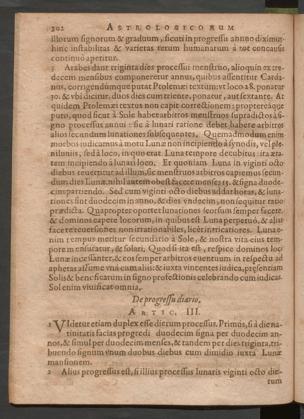 202 ASTROLOGICORUM
illorum signorum & graduum, sicuti in progressu annuo diximus
hinc instabilitas & varietas rerum humanarum à tot concausis
continuò aperitur.
Arabes dant triginta dies processui menstruo, alioquin ex tre-
decem mensibus componeretur annus, quibus assentitur Carda-
nus, corrigendúmque putat Ptolemæi textum: vt loco 28. ponatur
30. & vbi dicitur, duos dies cum triente, ponatur, aut sextante. At
quidem Ptolemæi textus non capit correctionem: proptereáque
puto, quod sicut à Sole habet arbitros menstruos supradictos si-
gno processus annui: sic à lunari ratione debet habere arbitros
alios secundum lunationes subsequetes. Quemadmodum enim
morbos iudicamus à motu Lunæ non incipiendo à synodis, vel ple-
niluniis, sed à loco, in quo erat Luna tempore decubitus: ita æta-
tem incipiendo à lunari loco. Et quoniam Luna in viginti octo
diebus reuertitur ad illum, sic menstruos arbitros capiemus secun-
dum dies Lunæ, nihil autem obest
partiendo. Sed cum viginti octo diebus addat horas, & luna-
tiones sint duodecim in anno, & dies vndecim, non sequitur ratio
prædicta. Quapropter oportet lunationes seorsum semper facere,
& dominos capere locorum, in quibus est Luna perpetuò, & alias
facere reuersiones non irrationabiles, licèt irriticatores. Lunæ e-
nim tempus metitur secundario à Sole, & nostra vita eius tem-
pore mensuratur, & solari, Quod si ita est, respice dominos loci
Lunæ incessanter, & eos semper arbitros euentuum in respectu ad
aphetas assume vnà cum aliis: & iuxta vincentes iudica, præsentiam
Solis & beneficarum in signo profectionis celebrando cum iudicas.
Sol enim viuificat omnia.
De progressu diurno.
ARTIC. III.
1 VIdetur etiam duplex esse dierum processus. Primùs, si à die na-
tiuitatis facias progredi duodecim signa per duodecim an-
nos, & simul per duodecim menses, & tandem per dies triginta, tri-
buendo signum vnum duobus diebus cum dimidio iuxta Lunæ
mansionem.
2 Alius progressus est, si illius processus lunaris viginti octo die-
rum